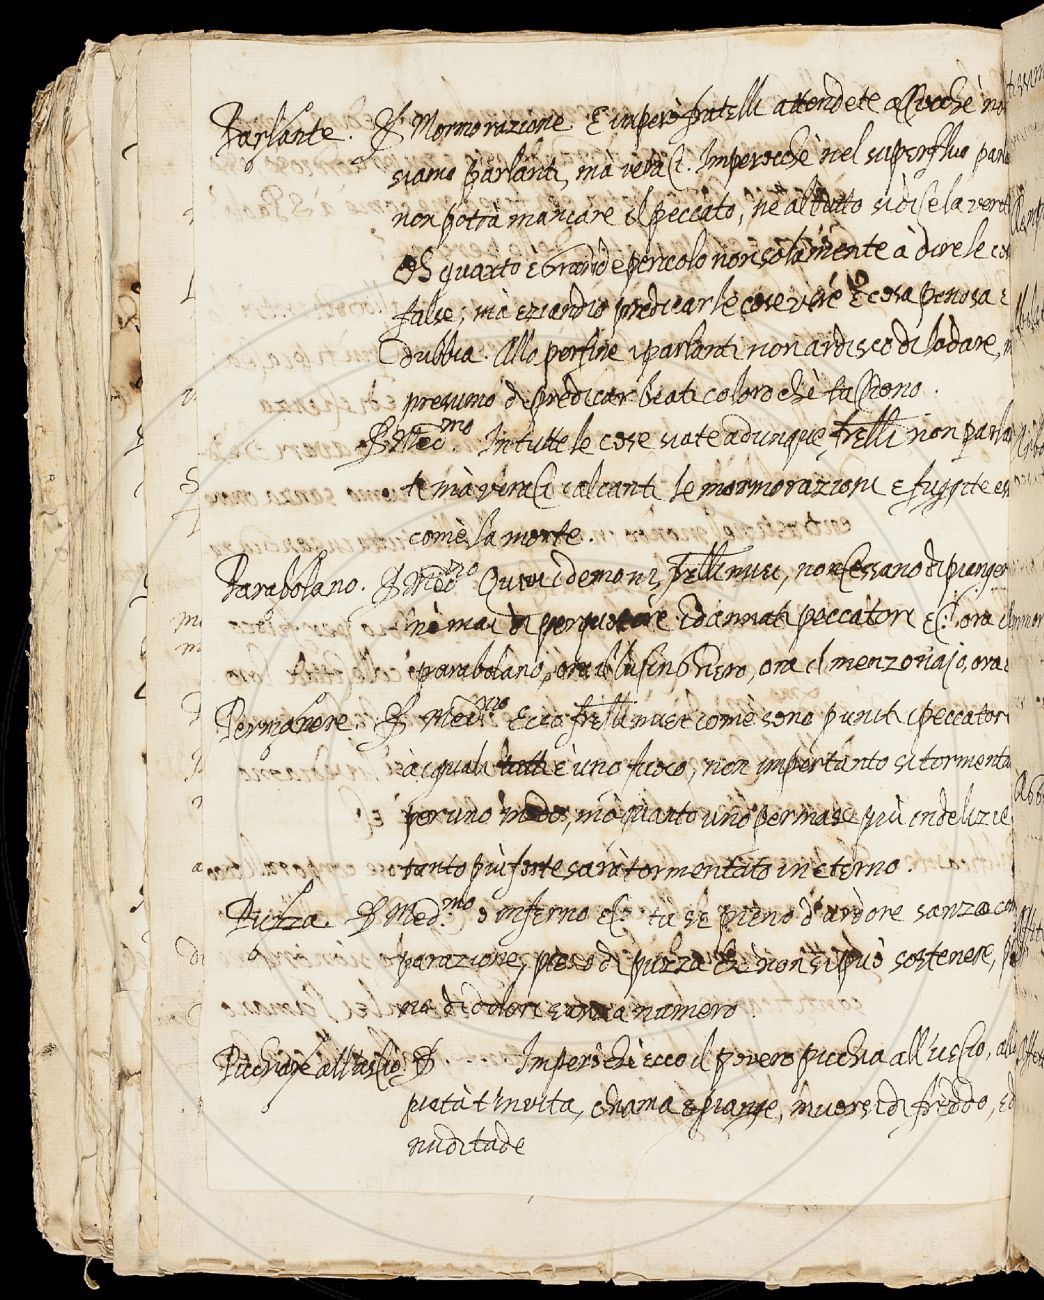 Parlante. S. Mormorazione E imperò fratelli attendete acciocchè no
siamo parlanti, ma veraci. Imperocchè nel superfluo parla
non potrà mancare il peccato, nè al tutto si dice la verit
Oh quanto è grande pericolo non solamente à dire le co
false, mà eziandio predicar le cose vere è cosa penosa e
dubbia. Alla perfine i parlanti non ardisco di lodare, 
presumo di predicar beati coloro che tacciono.
S. Med.mo. In tutte le cose siate adunque, frelli non parla
ti mà veraci calcanti le mormorazioni e fuggite es
come la morte.
Parabolano. S. Med.mo Quivi i demoni, frelli miei, non cessano di pianger
nè mai di perquotere i dannati peccatori &c: ora il
parabolano, ora il lusinghiero, ora il menzoniajo, ora
Permanere. S. Med.mo Ecco frelli miei come sono puniti i peccatori
à i quali tutti è uno fuoco, non impertanto si tormenta
per uno modo, mà quanto uno permase più in delizie
tanto più forte sarà tormentato in eterno.
Puzza. S. Med.mo o inferno &c: tu se pieno d'ardore sanza com
parazione, pieno di puzza che non si può sostenere, p
no di dolori sanza numero
Picchiare all'uscio. S. Imperò chè ecco il povero picchia all'uscio, alla
pietà t'invita, chiama e piange, muorsi di freddo, e d
nuditade